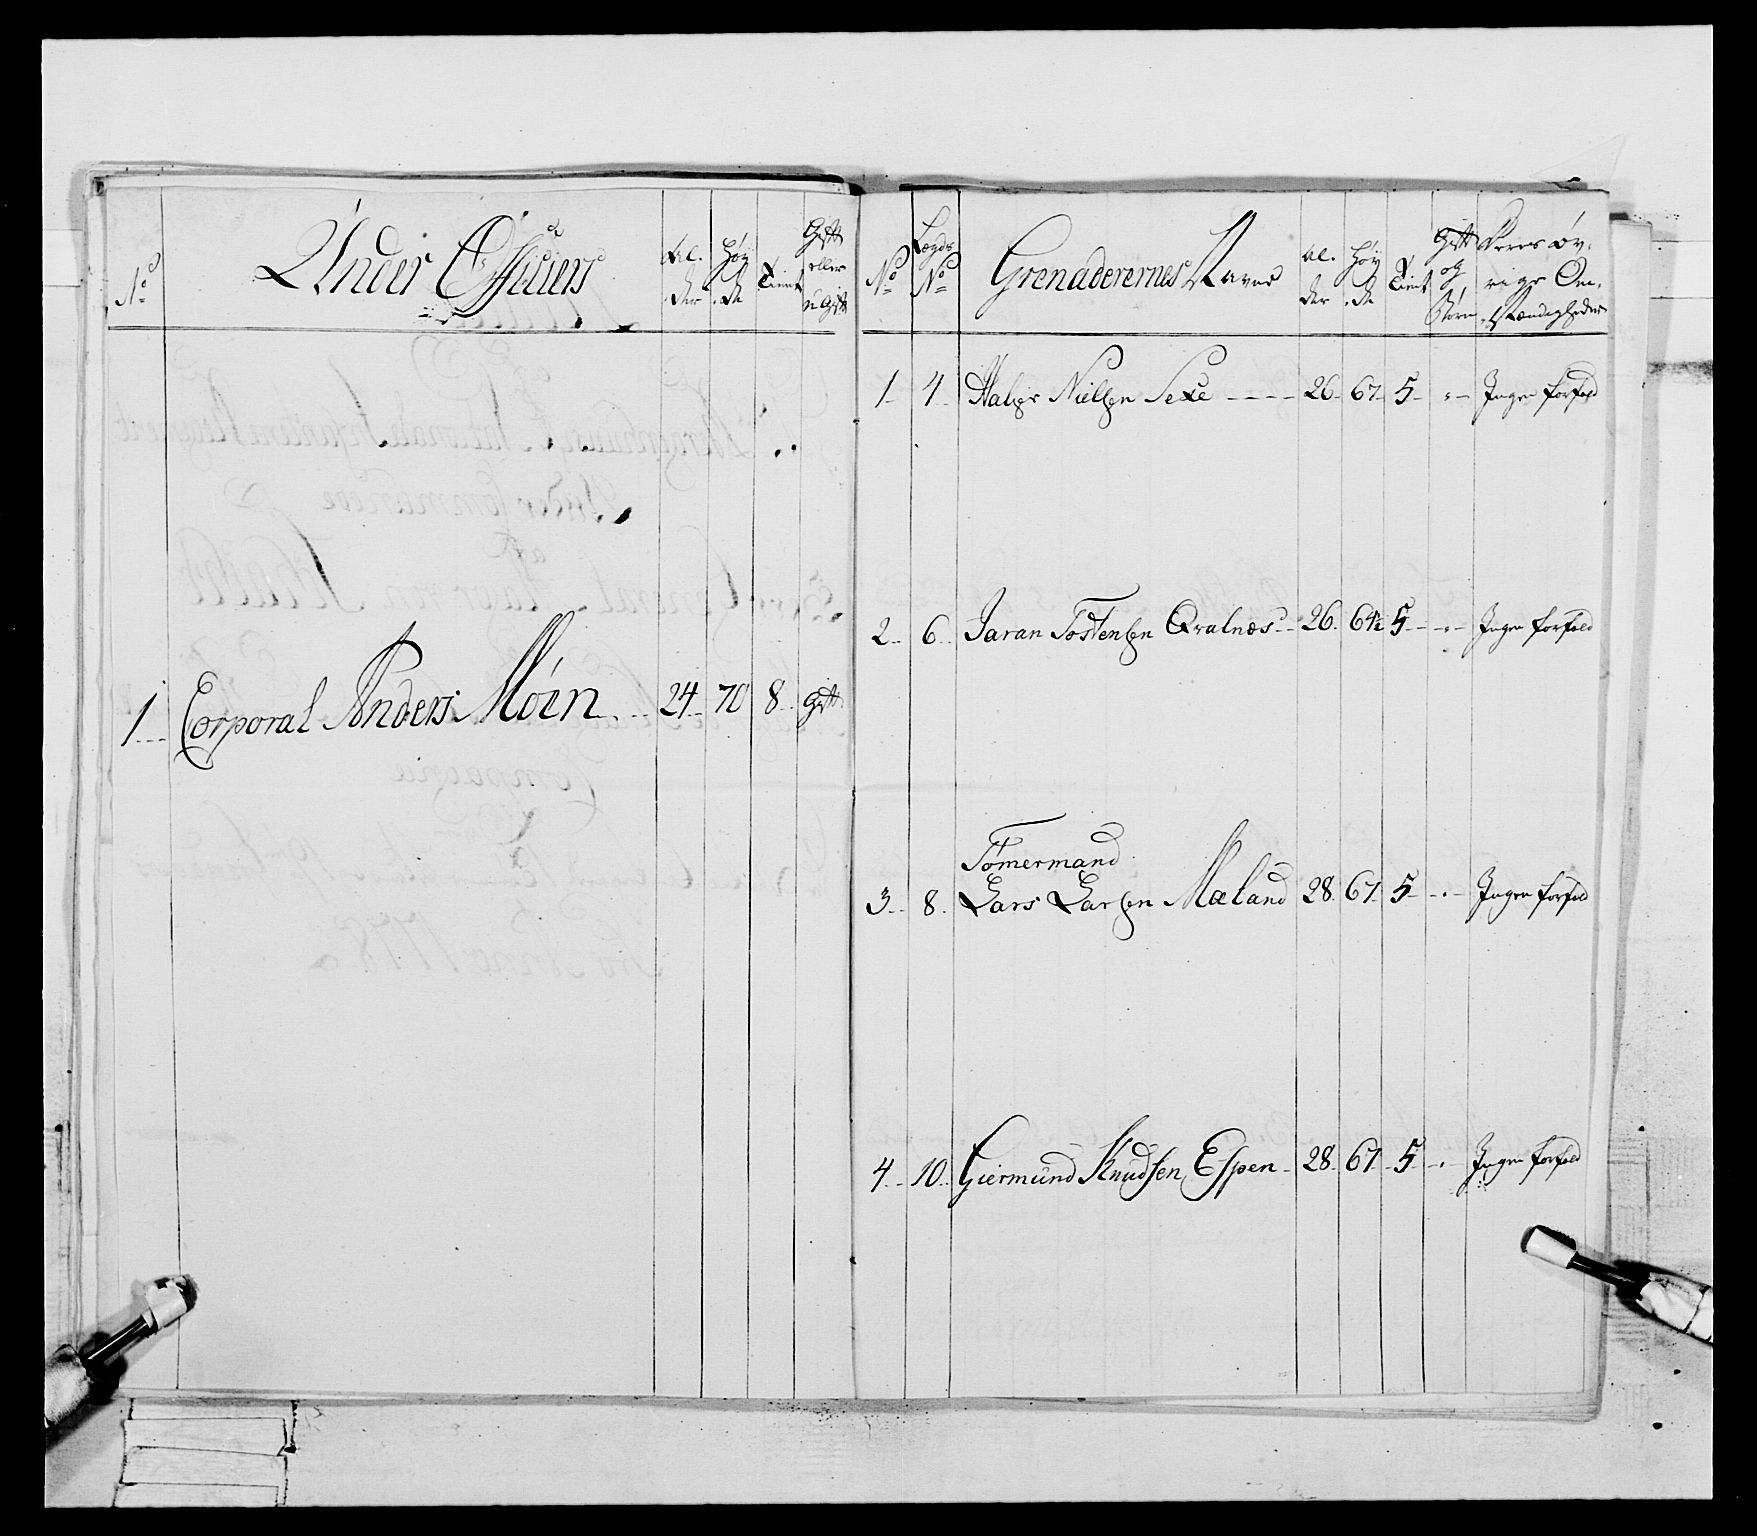 No
Under Officiers
Al.
der
Høy
de
Tient
Gift
eller
u Gift
1 Corporal Anders Möen 24 70 8 Gift
No
Lægds
No
Grenaderernes Navne
Al.
der
Høy
de
Tient
Gift
og
Børn
Deres øv-
rige Om-
stændigheder
1 4 Nielsen Sexe 26 67 5 " Ingen forfald
2 6 Jaran Tostensen Qvalnæs 26 64½ 5 " Ingen forfald
Tømermand
3 8 Lars Larsen Mæland 28 67 5 " Ingen forfald
4 10 Giermund Knudsen Espen 28 67 5 " Ingen forfald